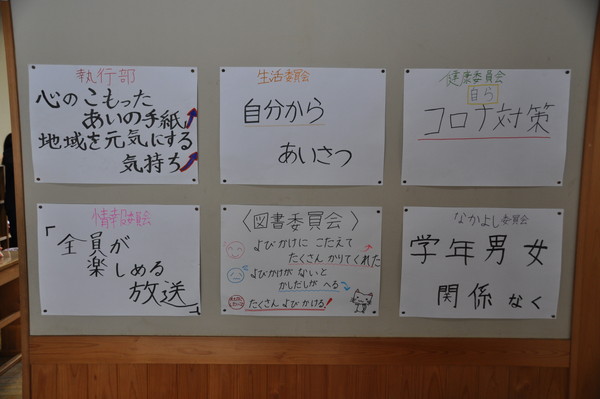 執行部
心のこもった
あいの手紙
地域を元気にする
気持ち
生活委員会
自分から
あいさつ
健康委員会
自ら
コロナ対策
情報委員会
「全員が
楽しめる
放送」
〈図書委員会〉
よびかけに こたえて
たくさん かりてくれた
よびかけがないと
かしだしが へる
たくさん よびかける!
なかよし委員会
学年男女
関係なく